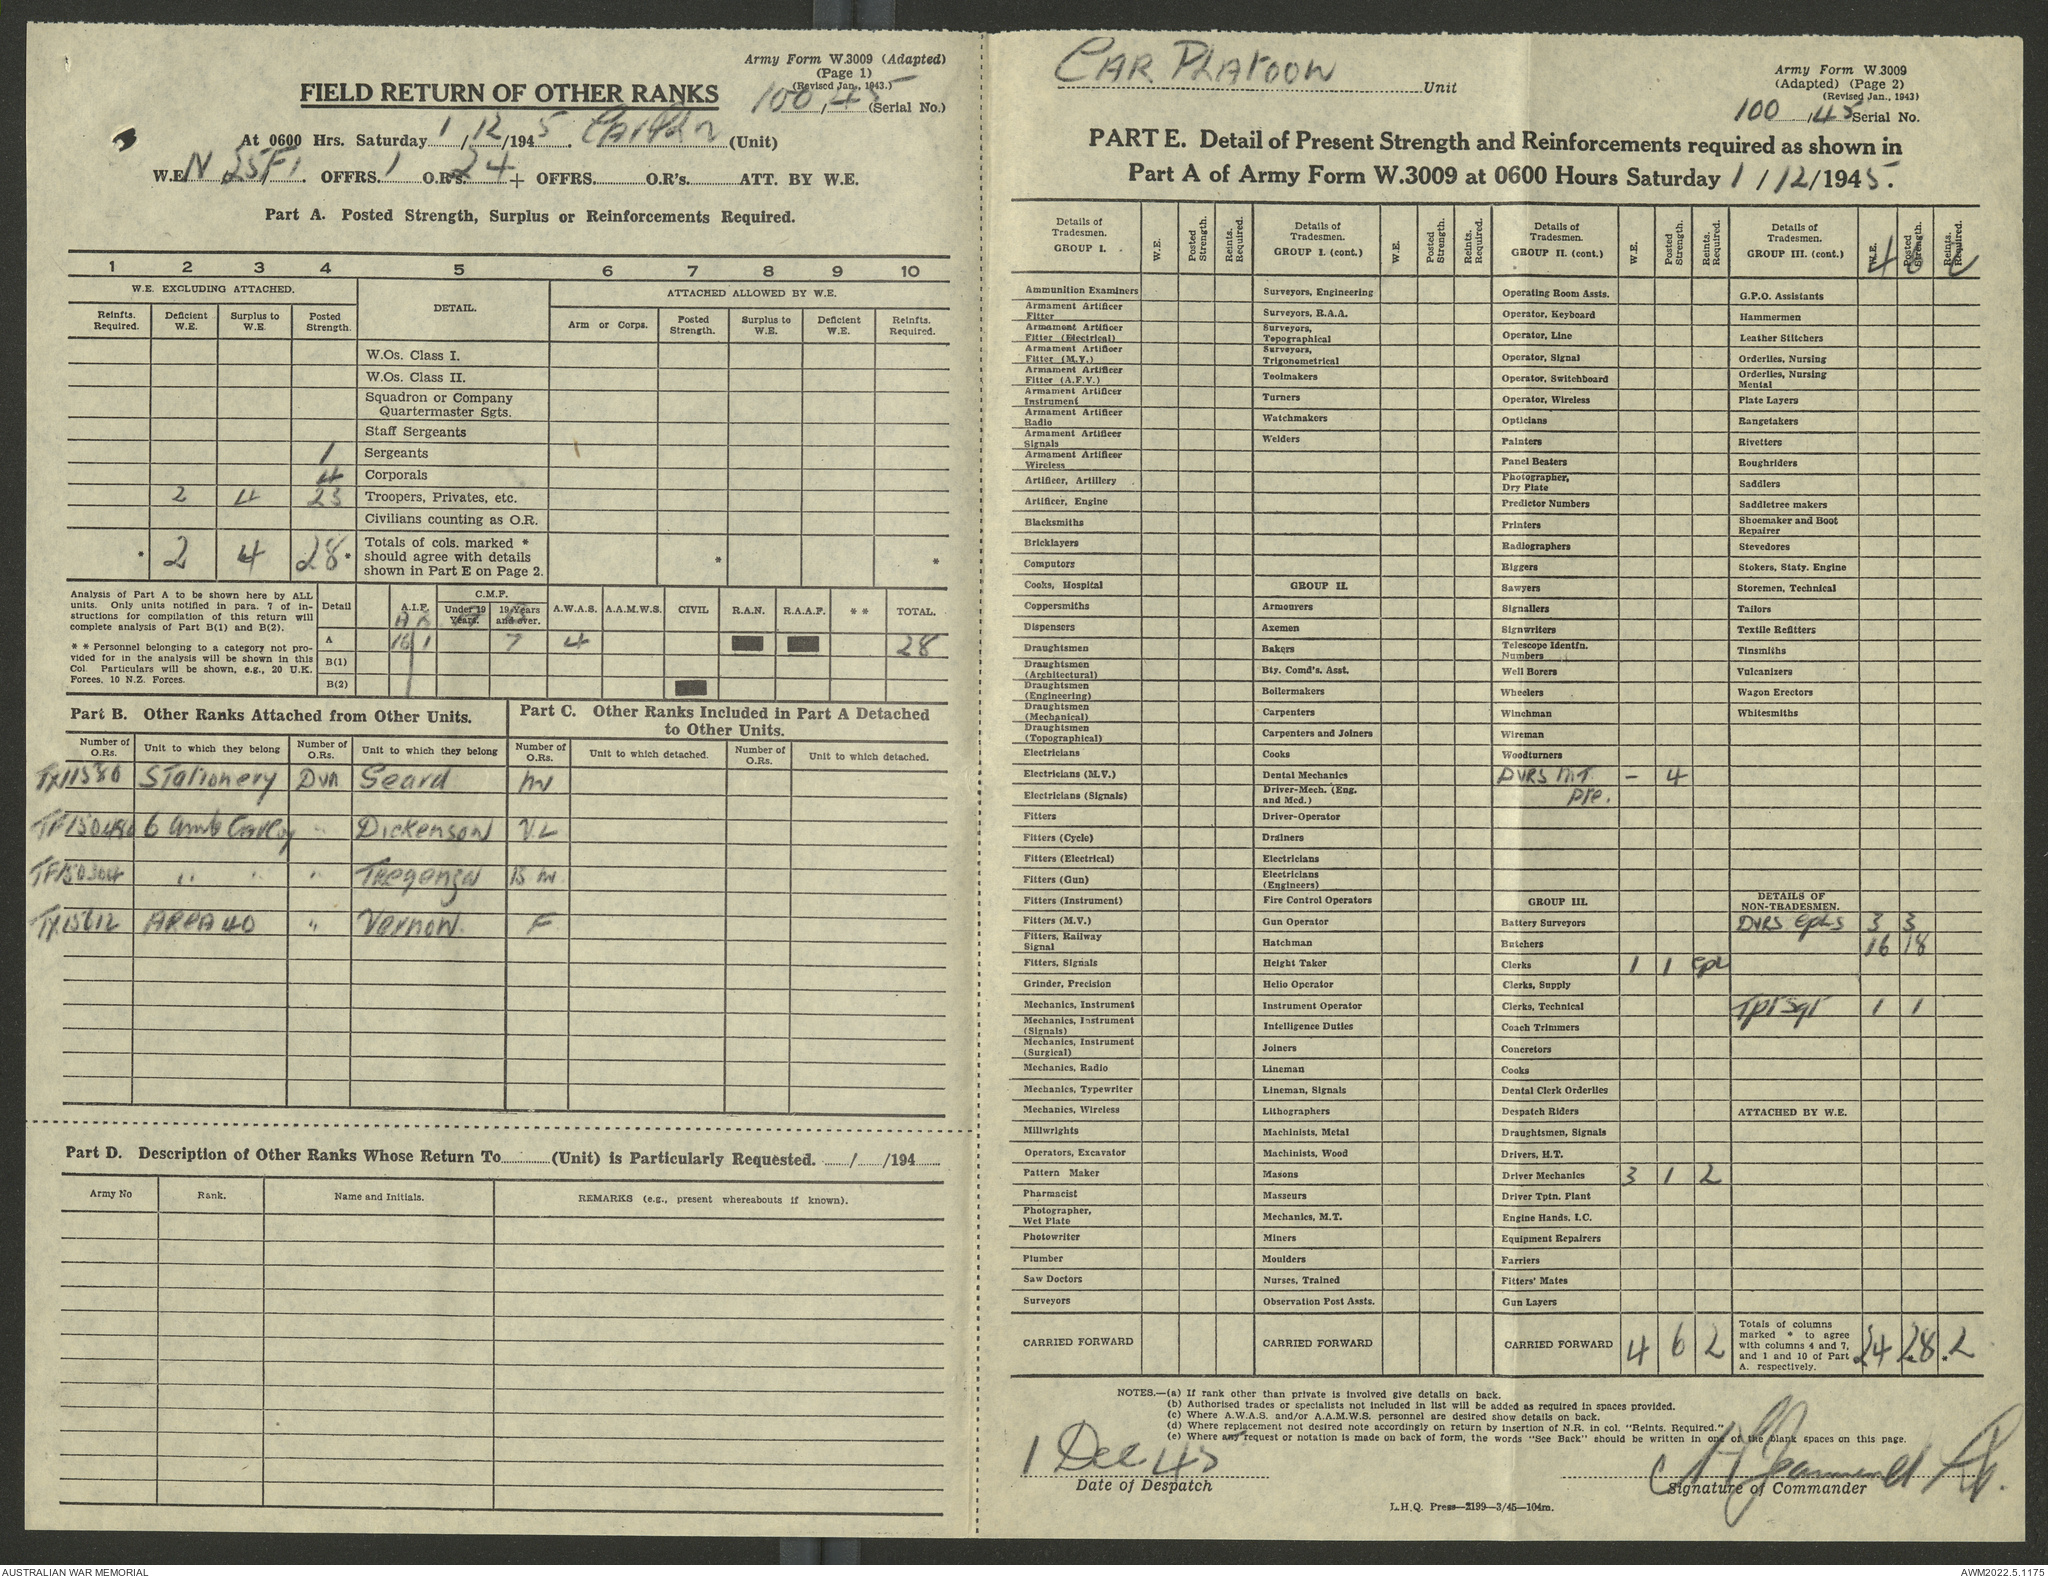 Army Form W.3009 (Adapted)
(Page 1)
(Revised Jan., 1943.)
FIELD RETURN OF OTHER RANKS
100/45 (Serial No.)
At 0600 Hrs. Saturday 1/12/1945. Car Pltn (Unit)
W.E. OFFRS. 1 O.R's. 24 + OFFRS. O.R's. ATT. BY W.E.
Part A. Posted Strength, Surplus or Reinforcements Required.
1 2 3 4 5 6 7 8 9 10
W.E. EXCLUDING ATTACHED. DETAIL. ATTACHED ALLOWED BY W.E.
Reinfts. Required. Deficient W.E. Surplus to W.E. Posted Strength. Arm or Corps. Posted Strength. Surplus to W.E. Deficient W.E. Reinfts. Required.
W.Os. Class I.
W.Os. Class II.
Squadron or Company
Quartermaster Sgts.
Staff Sergeants
1 Sergeants
4 Corporals
2 4 23 Troopers, Privates, etc.
Civilians counting as O.R.
* 2 4 28* Totals of cols. marked * should agree with details shown in Part E on Page 2. * *
Analysis of Part A to be shown here by ALL
units. Only units notified in para. 7 of in-
structions for compilation of this return will
complete analysis of Part B(1) and B(2).
* * Personnel belonging to a category not pro-
vided for in the analysis will be shown in this
Col. Particulars will be shown, e.g., 20 U.K.
Forces, 10 N.Z. Forces.
Detail A.I.F. C.M.F. Under 19 Years. 19 Years and over. A.W.A.S. A.A.M.W.S. CIVIL R.A.N. R.A.A.F. * * TOTAL.
A 16 1 7 4 28
B(1)
B(2)
Part B. Other Ranks Attached from Other Units.
Part C. Other Ranks Included in Part A Detached
to Other Units.
Number of O.Rs. Unit to which they belong Number of O.Rs. Unit to which they belong Number of O.Rs. Unit to which detached. Number of O.Rs. Unit to which detached.
TX11580 Stationery Dvr Geard M
6 Amb Dickenson V.L
TF150304 " " " Tregenza B M
TX15612 AREA 40 " Vernon F
Part D. Description of Other Ranks Whose Return To (Unit) is Particularly Requested. / /194
Army No Rank. Name and Initials. REMARKS (e.g., present whereabouts if known).
CAR PLATOON Unit
Army Form W.3009
(Adapted) (Page 2)
(Revised Jan., 1943)
100/45 Serial No.
PART E. Detail of Present Strength and Reinforcements required as shown in
Part A of Army Form W.3009 at 0600 Hours Saturday 1/12/1945.
Details of Tradesmen. GROUP I. W.E. Posted Strength. Reints. Required.
Ammunition Examiners
Armament Artificer Fitter
Armament Artificer Fitter (Electrical)
Armament Artificer Fitter (M.V.)
Armament Artificer Fitter (A.F.V.)
Armament Artificer Instrument
Armament Artificer Radio
Armament Artificer Signals
Armament Artificer Wireless
Artificer, Artillery
Artificer, Engine
Blacksmiths
Bricklayers
Computors
Cooks, Hospital
Coppersmiths
Dispensers
Draughtsmen
Draughtsmen (Architectural)
Draughtsmen (Engineering)
Draughtsmen (Mechanical)
Draughtsmen (Topographical)
Electricians
Electricians (M.V.)
Electricians (Signals)
Fitters
Fitters (Cycle)
Fitters (Electrical)
Fitters (Gun)
Fitters (Instrument)
Fitters (M.V.)
Fitters, Railway Signal
Fitters, Signals
Grinder, Precision
Mechanics, Instrument
Mechanics, Instrument (Signals)
Mechanics, Instrument (Surgical)
Mechanics, Radio
Mechanics, Typewriter
Mechanics, Wireless
Millwrights
Operators, Excavator
Pattern Maker
Pharmacist
Photographer, Wet Plate
Photowriter
Plumber
Saw Doctors
Surveyors
CARRIED FORWARD
Details of Tradesmen. GROUP I. (cont.) W.E. Posted Strength. Reints. Required.
Surveyors, Engineering
Surveyors, R.A.A.
Surveyors, Topographical
Surveyors, Trigonometrical
Toolmakers
Turners
Watchmakers
Welders
GROUP II.
Armourers
Axemen
Bakers
Bty. Comd's. Asst.
Boilermakers
Carpenters
Carpenters and Joiners
Cooks
Dental Mechanics
Driver-Mech. (Eng. and Med.)
Driver-Operator
Drainers
Electricians
Electricians (Engineers)
Fire Control Operators
Gun Operator
Hatchman
Height Taker
Helio Operator
Instrument Operator
Intelligence Duties
Joiners
Lineman
Lineman, Signals
Lithographers
Machinists, Metal
Machinists, Wood
Masons
Masseurs
Mechanics, M.T.
Miners
Moulders
Nurses, Trained
Observation Post Assts.
CARRIED FORWARD
Details of Tradesmen. GROUP II. (cont.) W.E. Posted Strength. Reints. Required.
Operating Room Assts.
Operator, Keyboard
Operator, Line
Operator, Signal
Operator, Switchboard
Operator, Wireless
Opticians
Painters
Panel Beaters
Photographer, Dry Plate
Predictor Numbers
Printers
Radiographers
Riggers
Sawyers
Signallers
Signwriters
Telescope Identfn. Numbers
Well Borers
Wheelers
Winchman
Wireman
Woodturners
DVRS M.T. - 4
pte.
GROUP III.
Battery Surveyors
Butchers
Clerks 1 1 Cpl
Clerks, Supply
Clerks, Technical
Coach Trimmers
Concretors
Cooks
Dental Clerk Orderlies
Despatch Riders
Draughtsmen, Signals
Drivers, H.T.
Driver Mechanics 3 1 2
Driver Tptn. Plant
Engine Hands, I.C.
Equipment Repairers
Farriers
Fitters' Mates
Gun Layers
CARRIED FORWARD 4 6 2
Details of Tradesmen. GROUP III. (cont.) W.E. Posted Strength. Reints. Required. 4 6 2
G.P.O. Assistants
Hammermen
Leather Stitchers
Orderlies, Nursing
Orderlies, Nursing Mental
Plate Layers
Rangetakers
Rivetters
Roughriders
Saddlers
Saddletree makers
Shoemaker and Boot Repairer
Stevedores
Stokers, Staty. Engine
Storemen, Technical
Tailors
Textile Refitters
Tinsmiths
Vulcanizers
Wagon Erectors
Whitesmiths
DETAILS OF NON-TRADESMEN.
DVRS Cpls 3 3
16 18
Tpt Sgt 1 1
ATTACHED BY W.E.
Totals of columns marked * to agree with columns 4 and 7, and 1 and 10 of Part A. respectively. 24 28 2
NOTES.—(a) If rank other than private is involved give details on back.
(b) Authorised trades or specialists not included in list will be added as required in spaces provided.
(c) Where A.W.A.S. and/or A.A.M.W.S. personnel are desired show details on back.
(d) Where replacement not desired note accordingly on return by insertion of N.R. in col. "Reints. Required."
(e) Where any request or notation is made on back of form, the words "See Back" should be written in one of the blank spaces on this page.
1 Dec 45
Date of Despatch
Signature of Commander
L.H.Q. Press—2199—3/45—104m.
AUSTRALIAN WAR MEMORIAL
AWM2022.5.1175